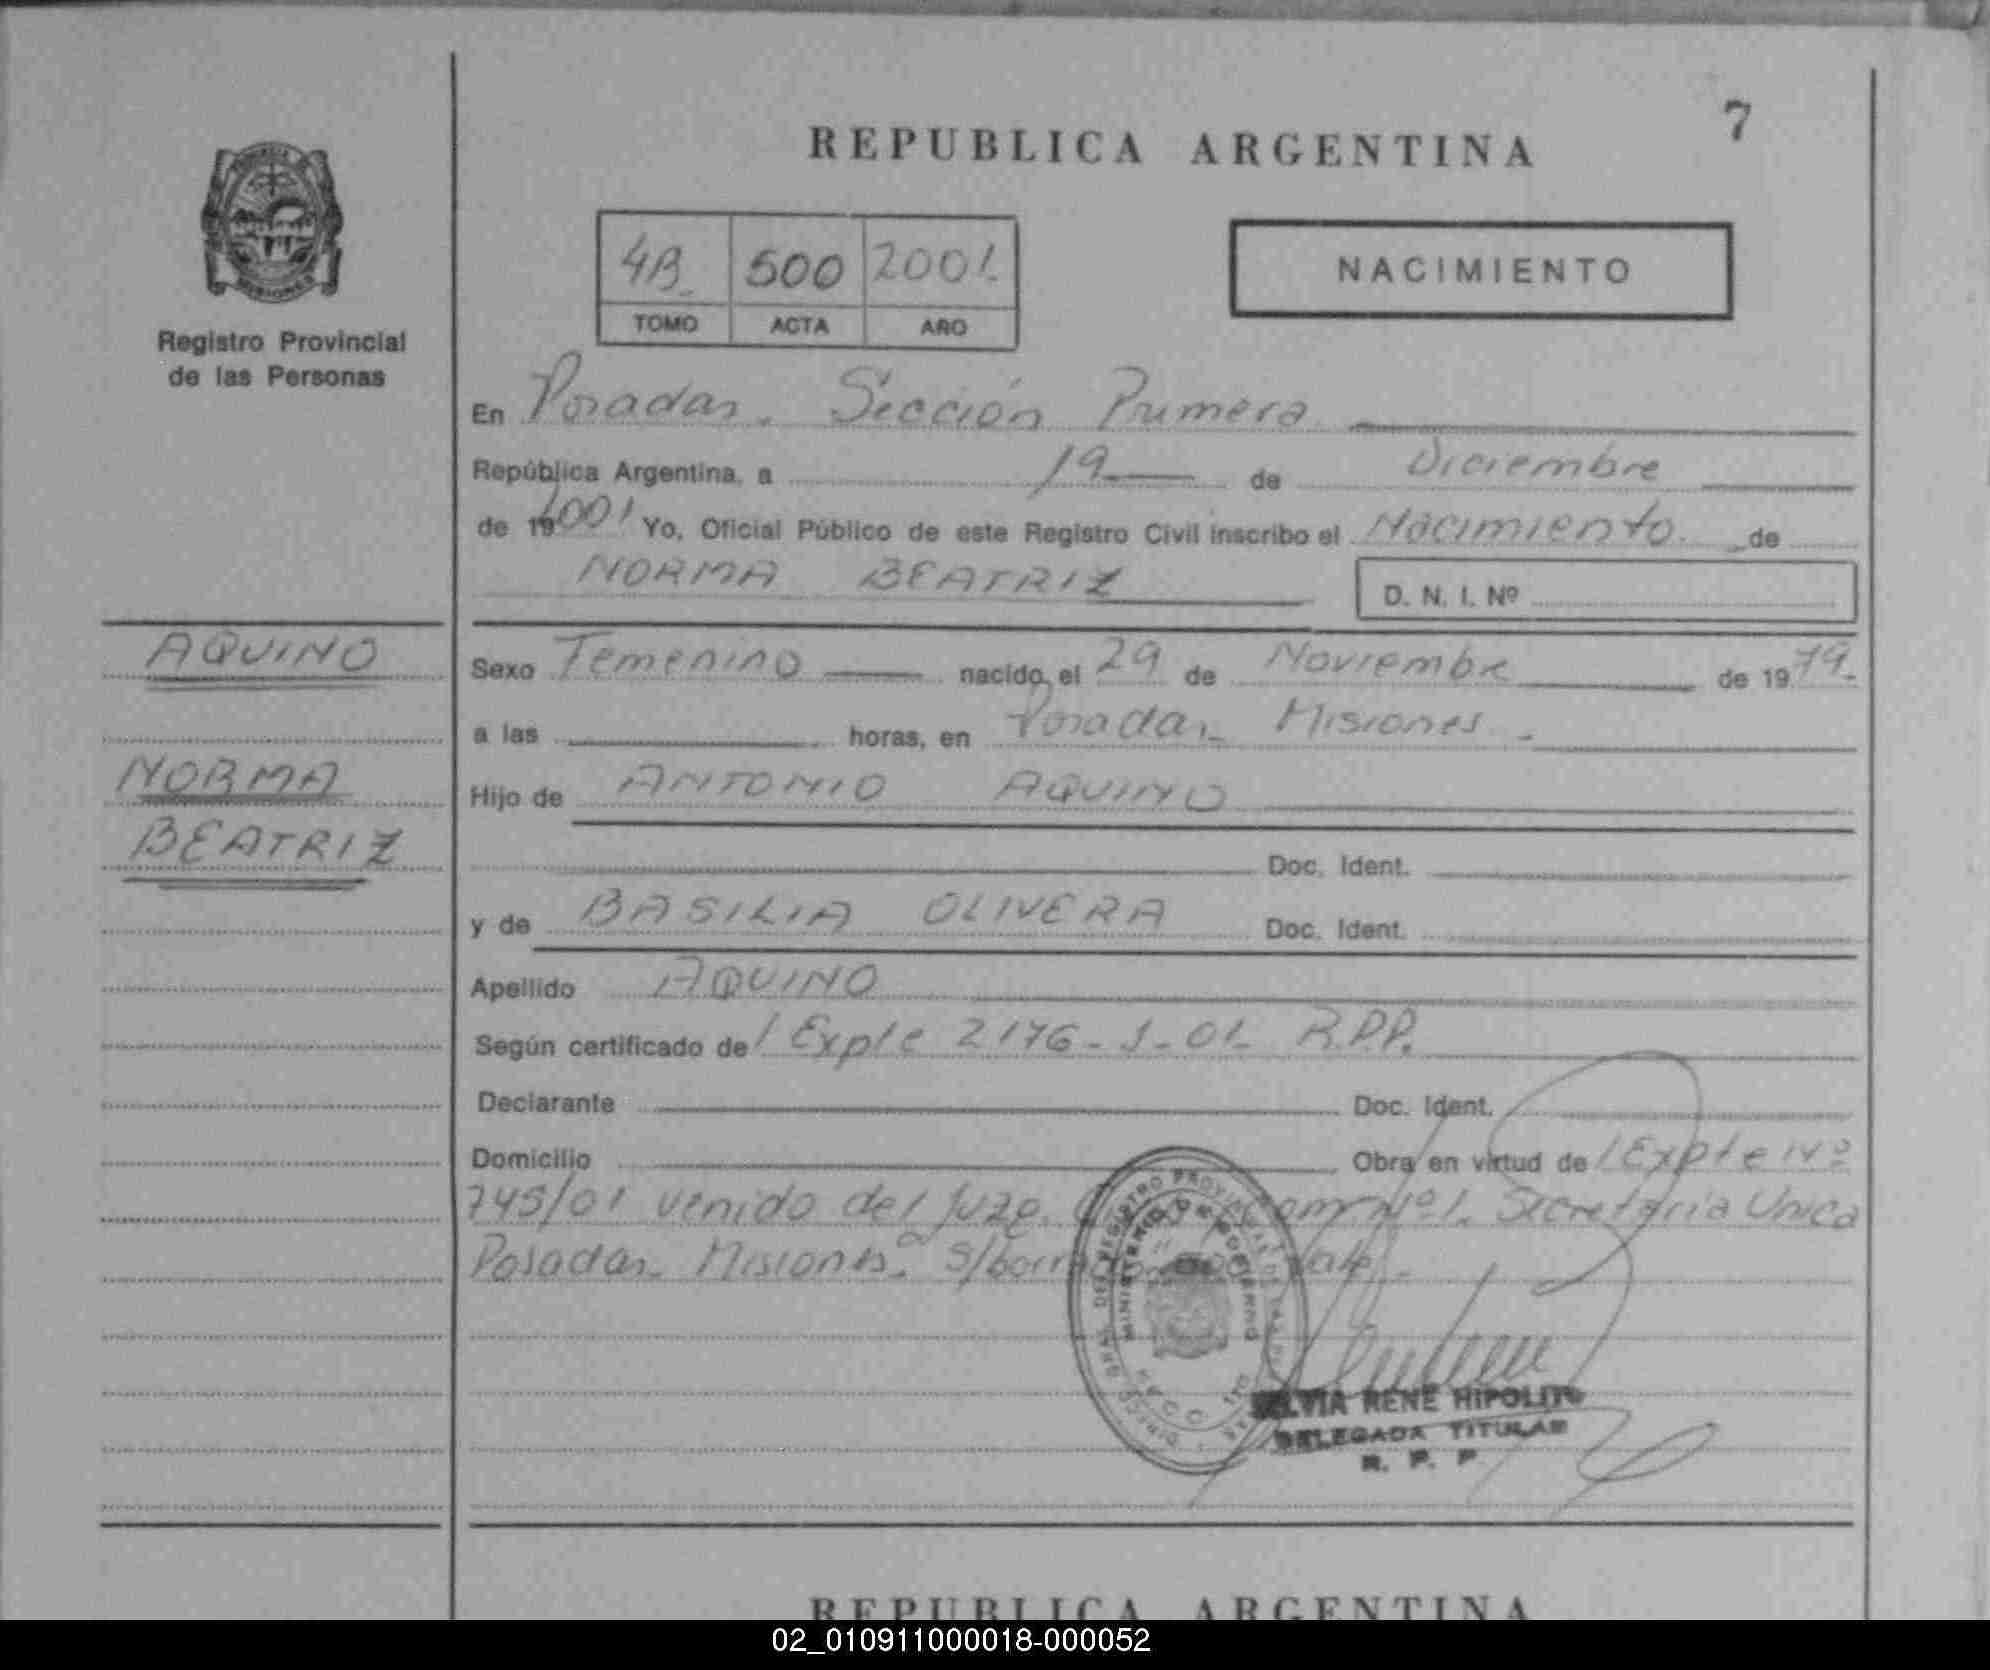 7
REPUBLICA ARGENTINA
NACIMIENTO
4B 500 2001
TOMO ACTA AÑO
Registro Provincial
de las Personas
En Posadas. Sección Primera
República Argentina, a 19 de Diciembre
de 19 2001 Yo, Oficial Público de este Registro Civil inscribo el Nacimiento de
NORMA BEATRIZ D. N. I. Nº
AQUINO
NORMA
BEATRIZ
Sexo Femenino nacido el 29 de Noviembre de 1979.
a las horas, en Posadas Misiones.
Hijo de ANTONIO AQUINO
Doc. Ident.
y de BASILIA OLIVERA Doc. Ident.
Apellido AQUINO
Según certificado de Expte 2176-J-01 R.P.P.
Declarante Doc. Ident.
Domicilio Obra en virtud de Expte Nº
745/01 venido del Juzg. Nº1. Secretaria Unica
Posadas. Misiones.
DEL REGISTRO PROVINCIAL DE
MINISTERIO DE GOBIERNO
SILVIA RENE HIPOLITO
DELEGADA TITULAR
R. P. P.
REPUBLICA ARGENTINA
02_010911000018-000052